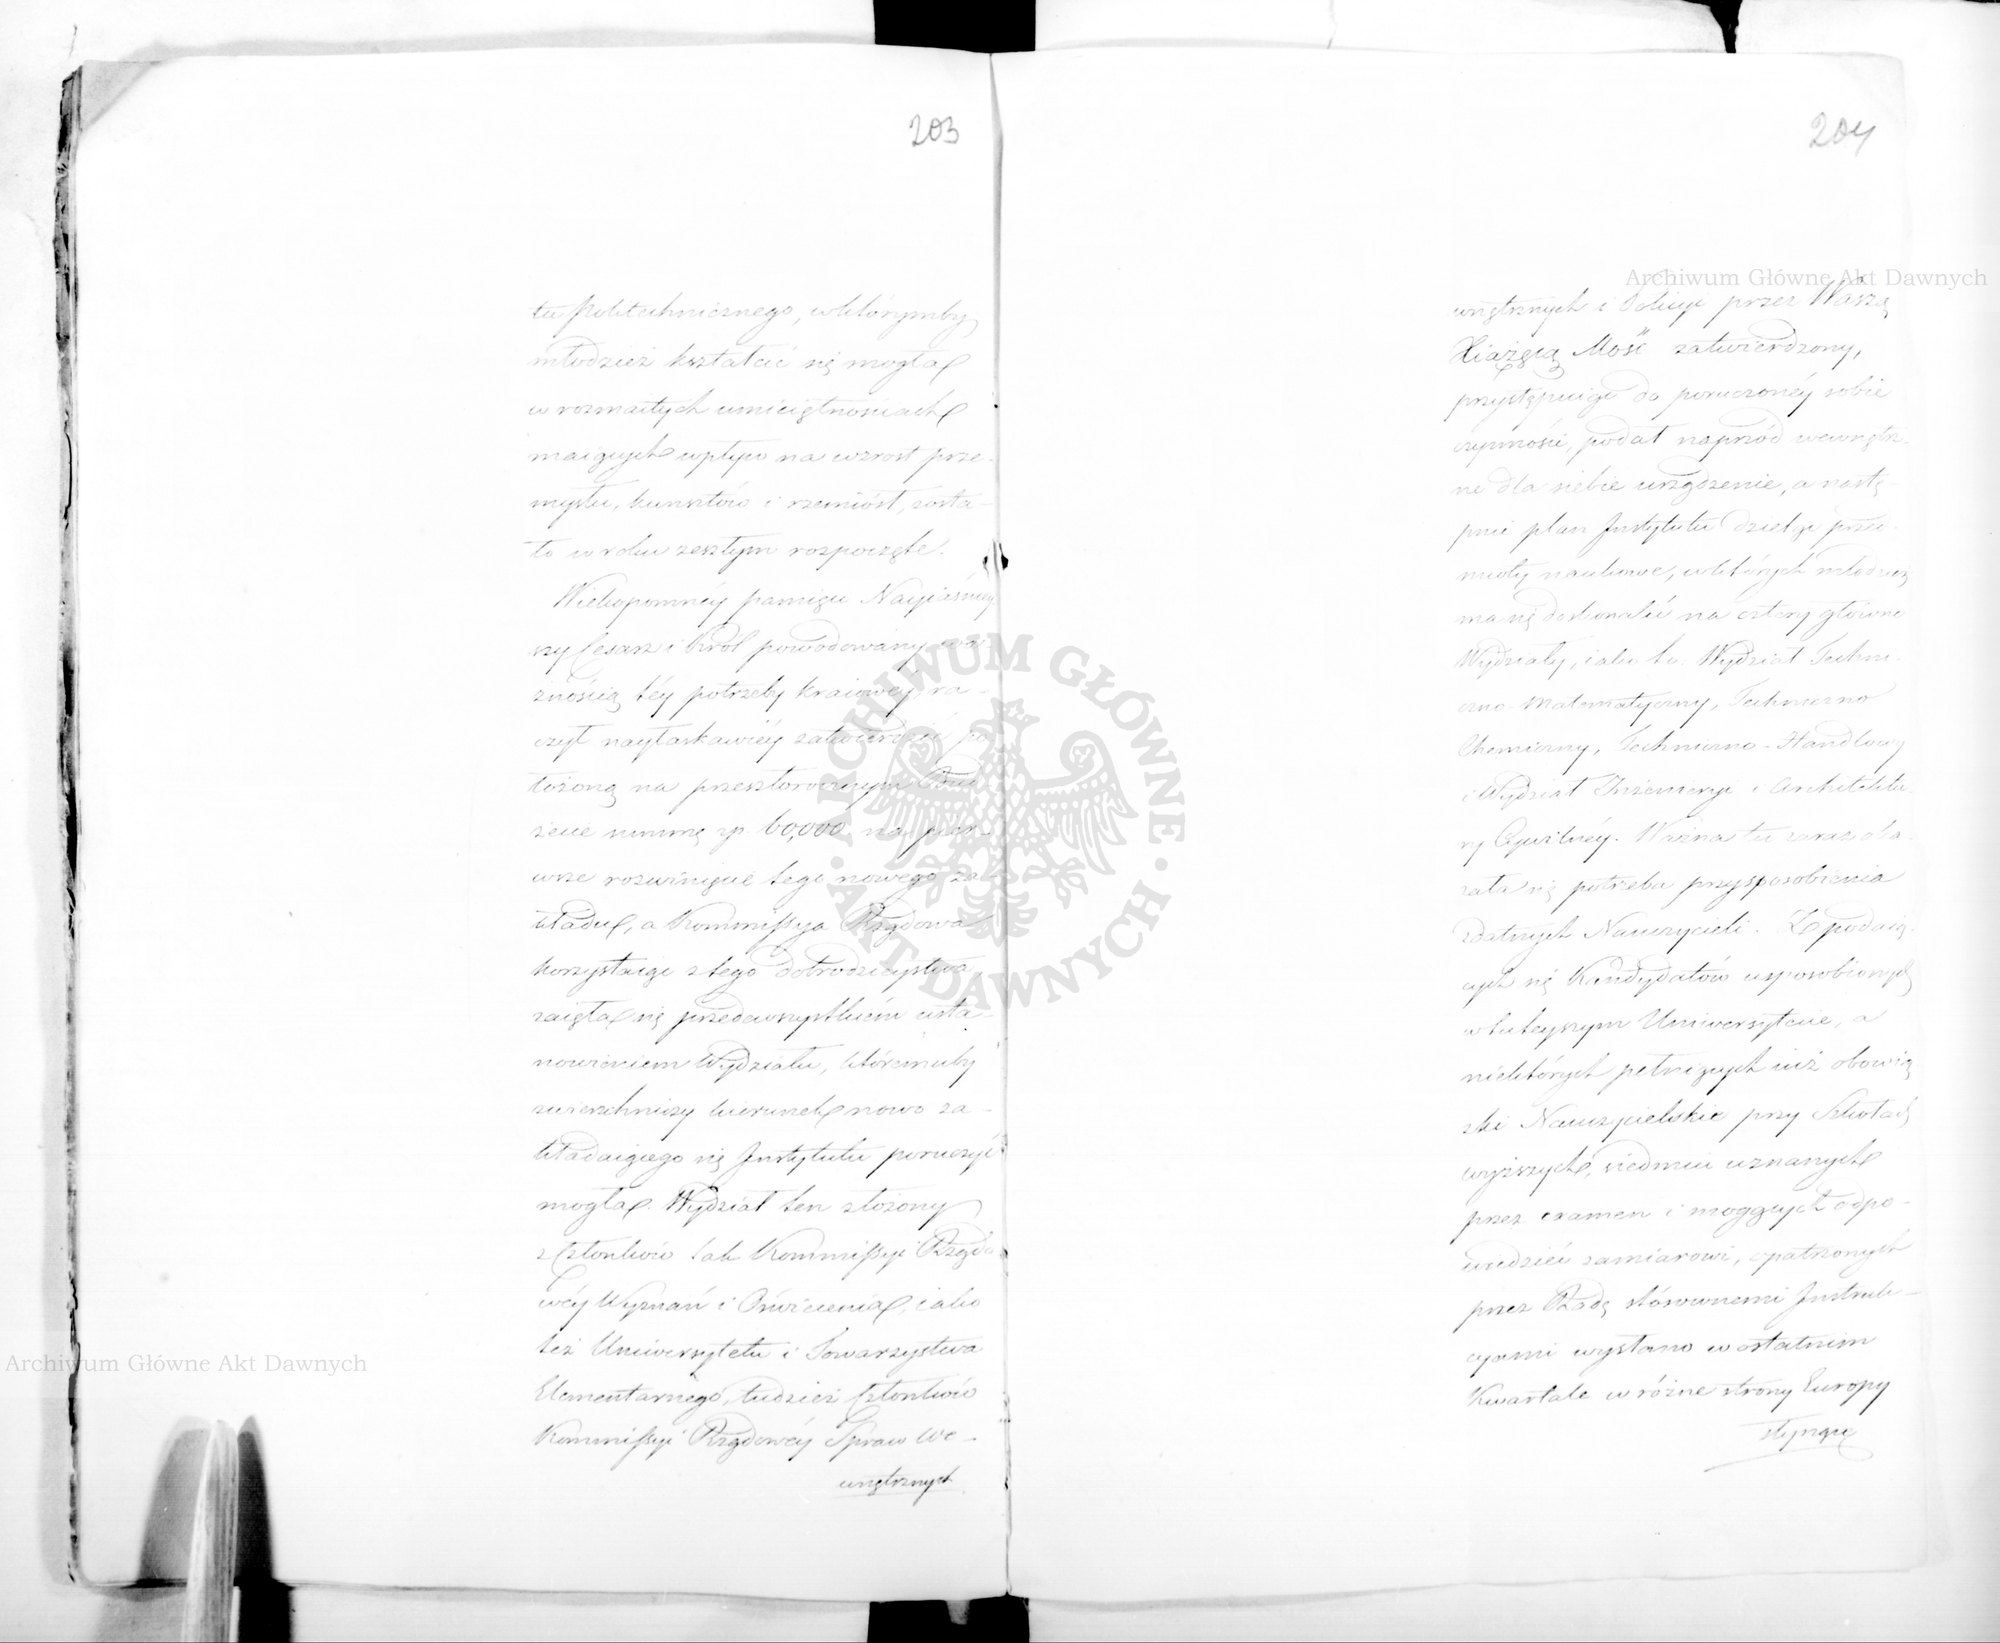 203
tu Politechnicznego, w którymby
młodzież kształcić się mogła
w rozmaitych umieiętnościach
maiących wpływ na wzrost prze-
mysłu, kunsztów i rzemiósł, zosta-
ło w roku zeszłym rozpoczęte.
Wiekopomnéy pamięci Nayiaśniey
szy Cesarz i Król powodowany wa-
żnością téy potrzeby kraiowéy, ra-
czył nayłaskawiéy zatwierdzić po
łożoną na przeszłorocznym Bud-
żecie summę zp 60,000 na pier-
wsze rozwinięcie tego nowego za-
kładu, a Kommissya Rządowa
korzystaiąc z tego dobrodzieystwa
zaięła się przedewszystkiém usta-
nowieniem Wydziału, któremuby
zwierzchniczy kierunek nowo za-
kładaiącego się Instytutu poruczyć
mogła. Wydział ten złożony
z Członków tak Kommissyi Rządo
wéy Wyznań i Oświecenia, iako
też Uniwersytetu i Towarzystwa
Elementarnego, tudzież Członków
Kommissyi Rządowéy Spraw We-
wnętrznych
204
wnętrznych i Policyi przez Waszą
Xiążęcą Mość zatwierdzony,
przystępuiąc do poruczonéy sobie
czynności, podał naprzód wewnętrz-
ne dla siebie urządzenie, a nastę-
pnie plan Instytutu dzieląc przed-
mioty naukowe, w których młodzież
ma się doskonalić na cztery główne
Wydziały, iako to: Wydział Techni-
czno-Matematyczny, Techniczno
Chemiczny, Techniczno-Handlowy
i Wydział Inżenieryi i Architektu-
ry Cywilnéy. Ważna tu zaraz oka-
zała się potrzeba przysposobienia
zdatnych Nauczycieli. Z podaią-
cych się Kandydatów usposobionych
w tuteyszym Uniwersytecie, a
niektórych pełniących iuż obowią
zki Nauczycielskie przy Szkołach
wyższych, siedmiu uznanych
przez examen i mogących odpo-
wiedzieć zamiarowi, opatrzonych
przez Radę stosownemi Instruk-
cyami wysłano w ostatnim
Kwartale w różne strony Europy
słynące
Archiwum Główne Akt Dawnych
Archiwum Główne Akt Dawnych
ARCHIWUM GŁÓWNE · AKT DAWNYCH ·